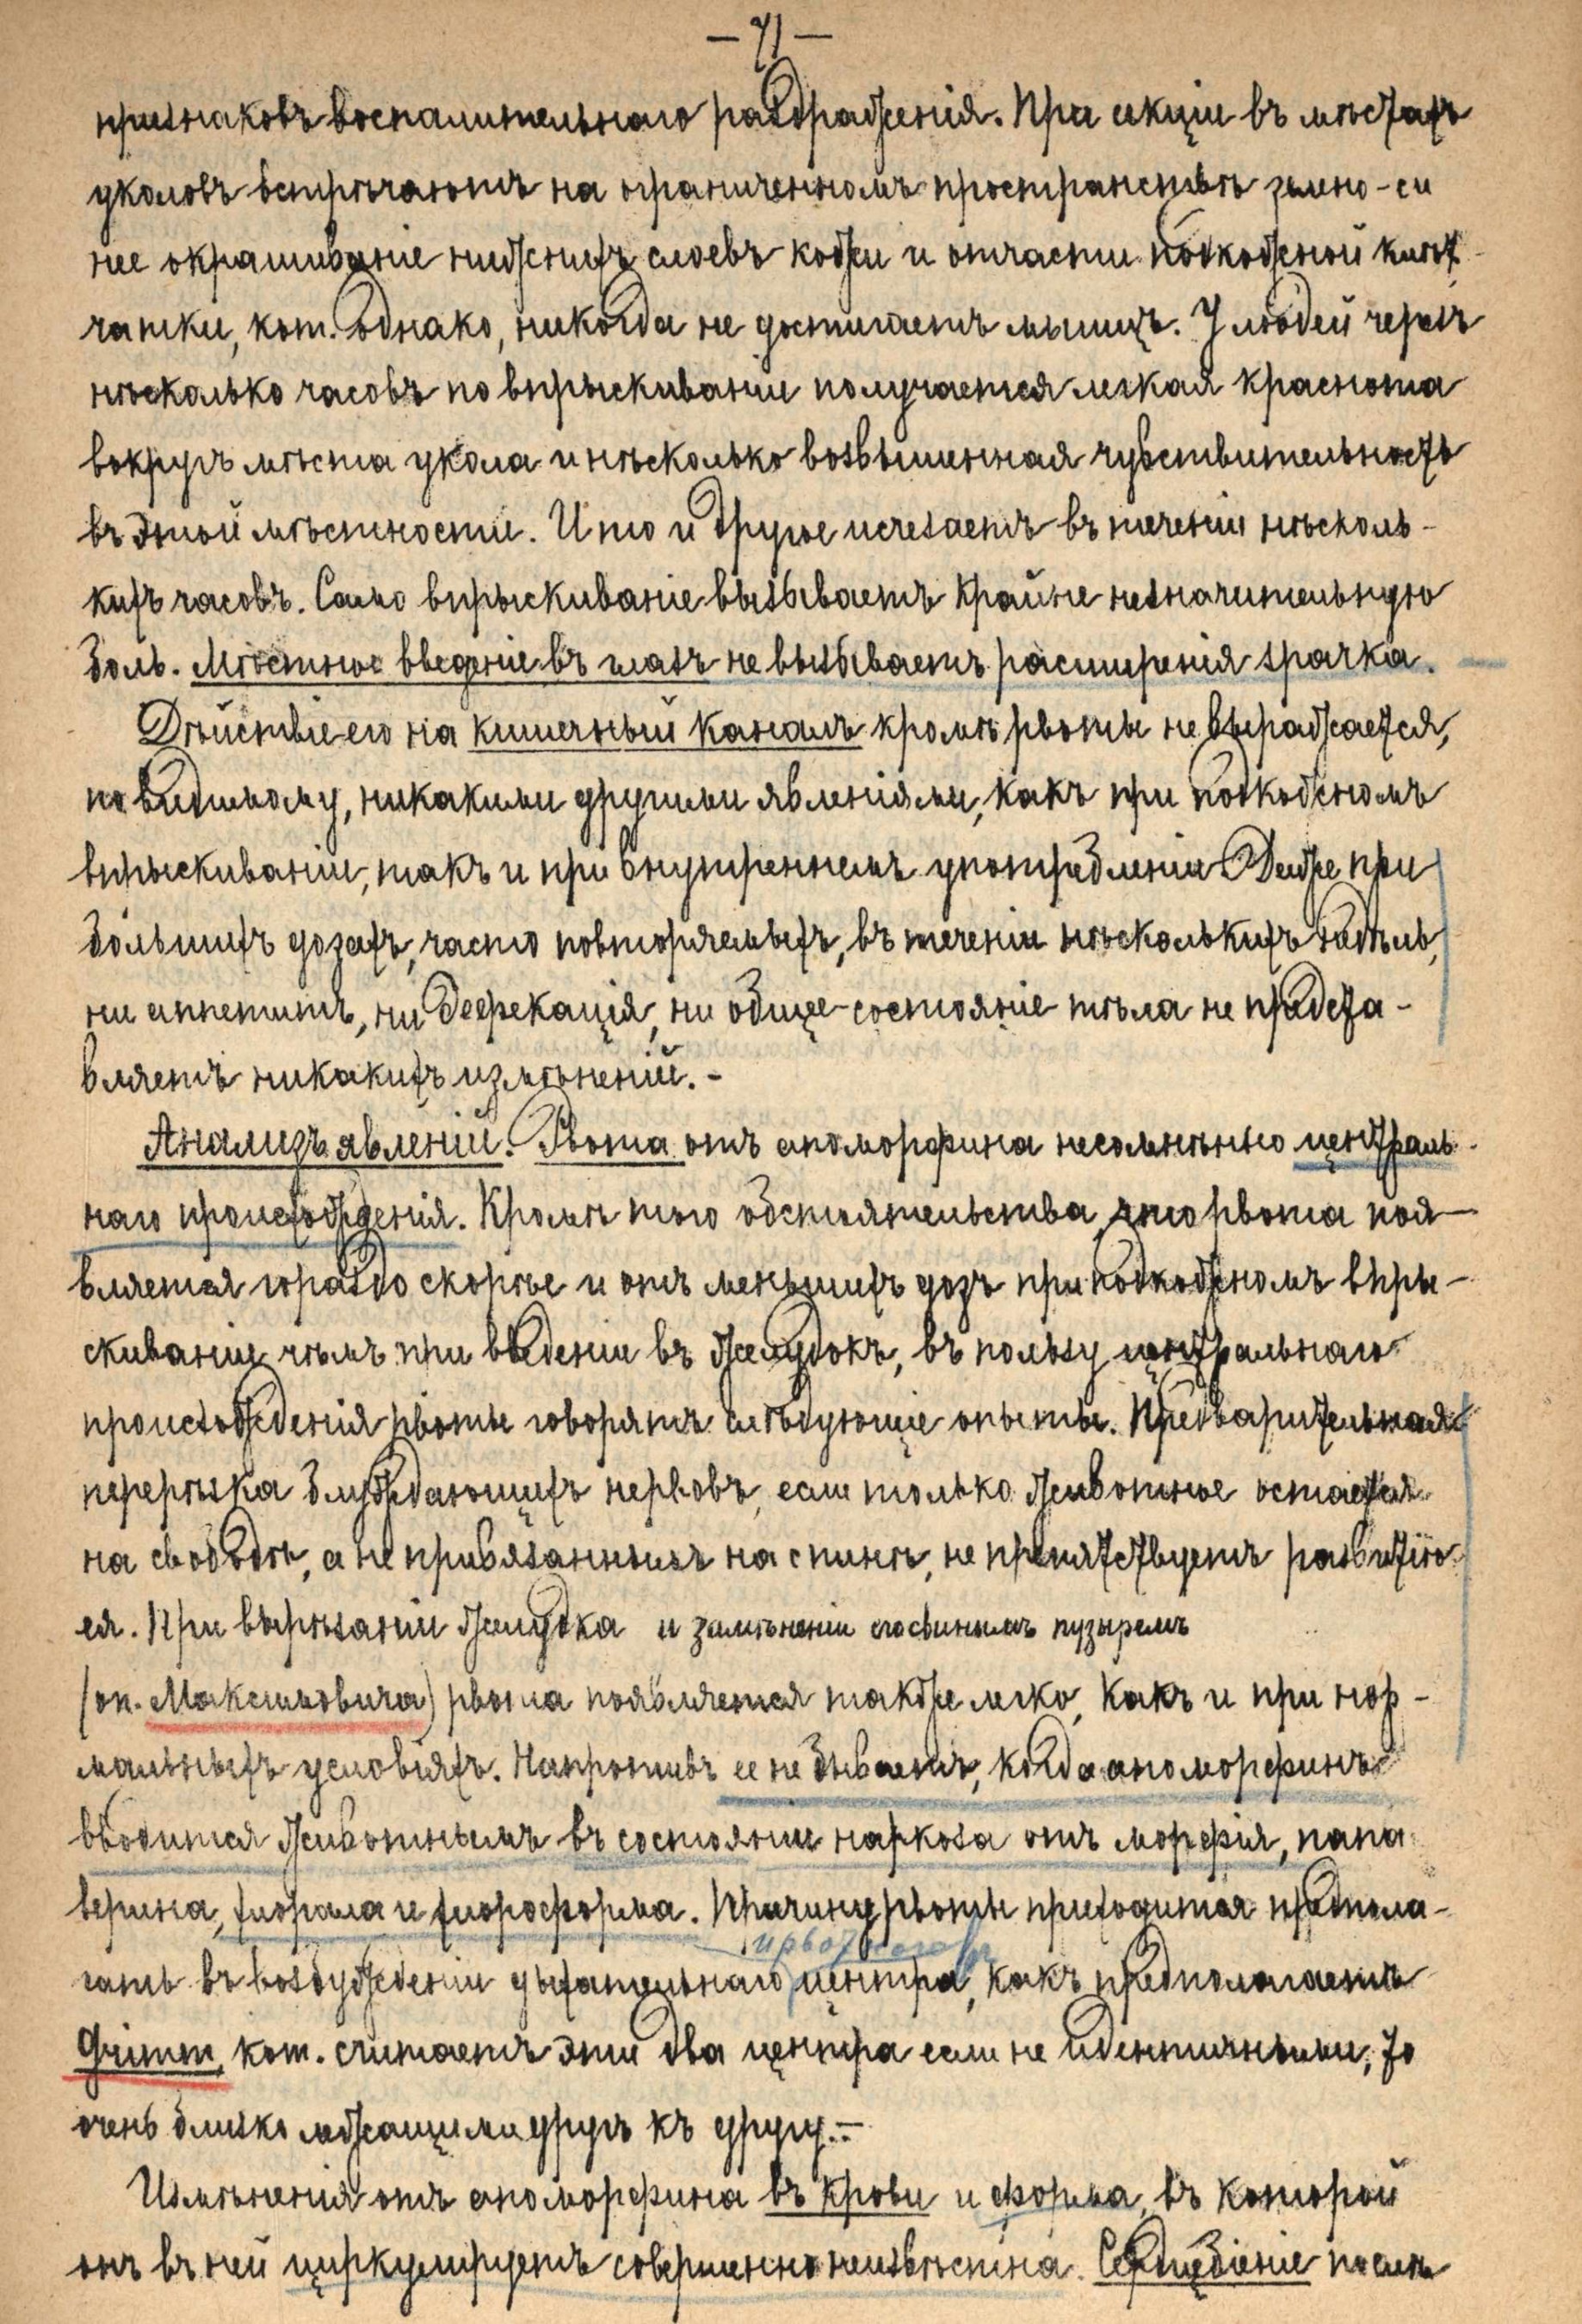 — 71 —
признаковъ воспалительнаго раздраженія. При секціи въ мѣстахъ
уколовъ встрѣчаютъ на ограниченномъ пространствѣ зелено-си
нее окрашиваніе нижнихъ слоевъ кожи и отчасти подкожной клѣт-
чатки, кот. однако, никогда не достигаетъ мышцъ. У людей черезъ
нѣсколько часовъ по впрыскиваніи получается легкая краснота
вокругъ мѣста укола и нѣсколько возвышенная чувствительность
въ этой мѣстности. И то и другое исчезаетъ въ теченіи нѣсколь-
кихъ часовъ. Само впрыскиваніе вызываетъ крайне незначительную
боль. Мѣстное введеніе въ глазъ не вызываетъ расширенія зрачка.
Дѣйствіе его на кишечный каналъ кромѣ рвоты не выражается,
по видимому, никакими другими явленіями, какъ при подкожномъ
впрыскиваніи, такъ и при внутреннемъ употребленіи. Даже при
большихъ дозахъ, часто повторяемыхъ, въ теченіи нѣсколькихъ недѣль,
ни аппетитъ, ни дефекація, ни общее состояніе тѣла не предста-
вляетъ никакихъ измѣненій. -
Анализъ явленій. Рвота отъ апоморфина несомнѣнно централь-
наго происхожденія. Кромѣ того обстоятельства, что рвота поя-
вляется гораздо скорѣе и отъ меньшихъ дозъ при подкожномъ впры-
скиваніи чѣмъ при введеніи въ желудокъ, въ пользу центральнаго
происхожденія рвоты говорятъ слѣдующіе опыты. Предварительная
перерѣзка блуждающихъ нервовъ, если только животное остается
на свободѣ, а не привязаннымъ на спинѣ, не препятствуетъ развитію
ея. При вырѣзаніи желудка и замѣненіи его свинымъ пузыремъ
(оп. Максимовича) рвота появляется также легко, какъ и при нор-
мальныхъ условіяхъ. Напротивъ ее не бываетъ, когда апоморфинъ
вводится животнымъ въ состояніи наркоза отъ морфія, папа-
верина, хлорала и хлороформа. Причину рвоты приходится предпола-
и рвотного
гать въ возбужденіи дыхательнаго центра, какъ предполагаетъ
Grimm, кот. считаетъ эти два центра если не идентичными, то
очень близко лежащими другъ къ другу. -
Измѣненія отъ апоморфина въ крови и форма, въ которой
онъ въ ней циркулируетъ совершенно неизвѣстна. Сердцебіеніе послѣ